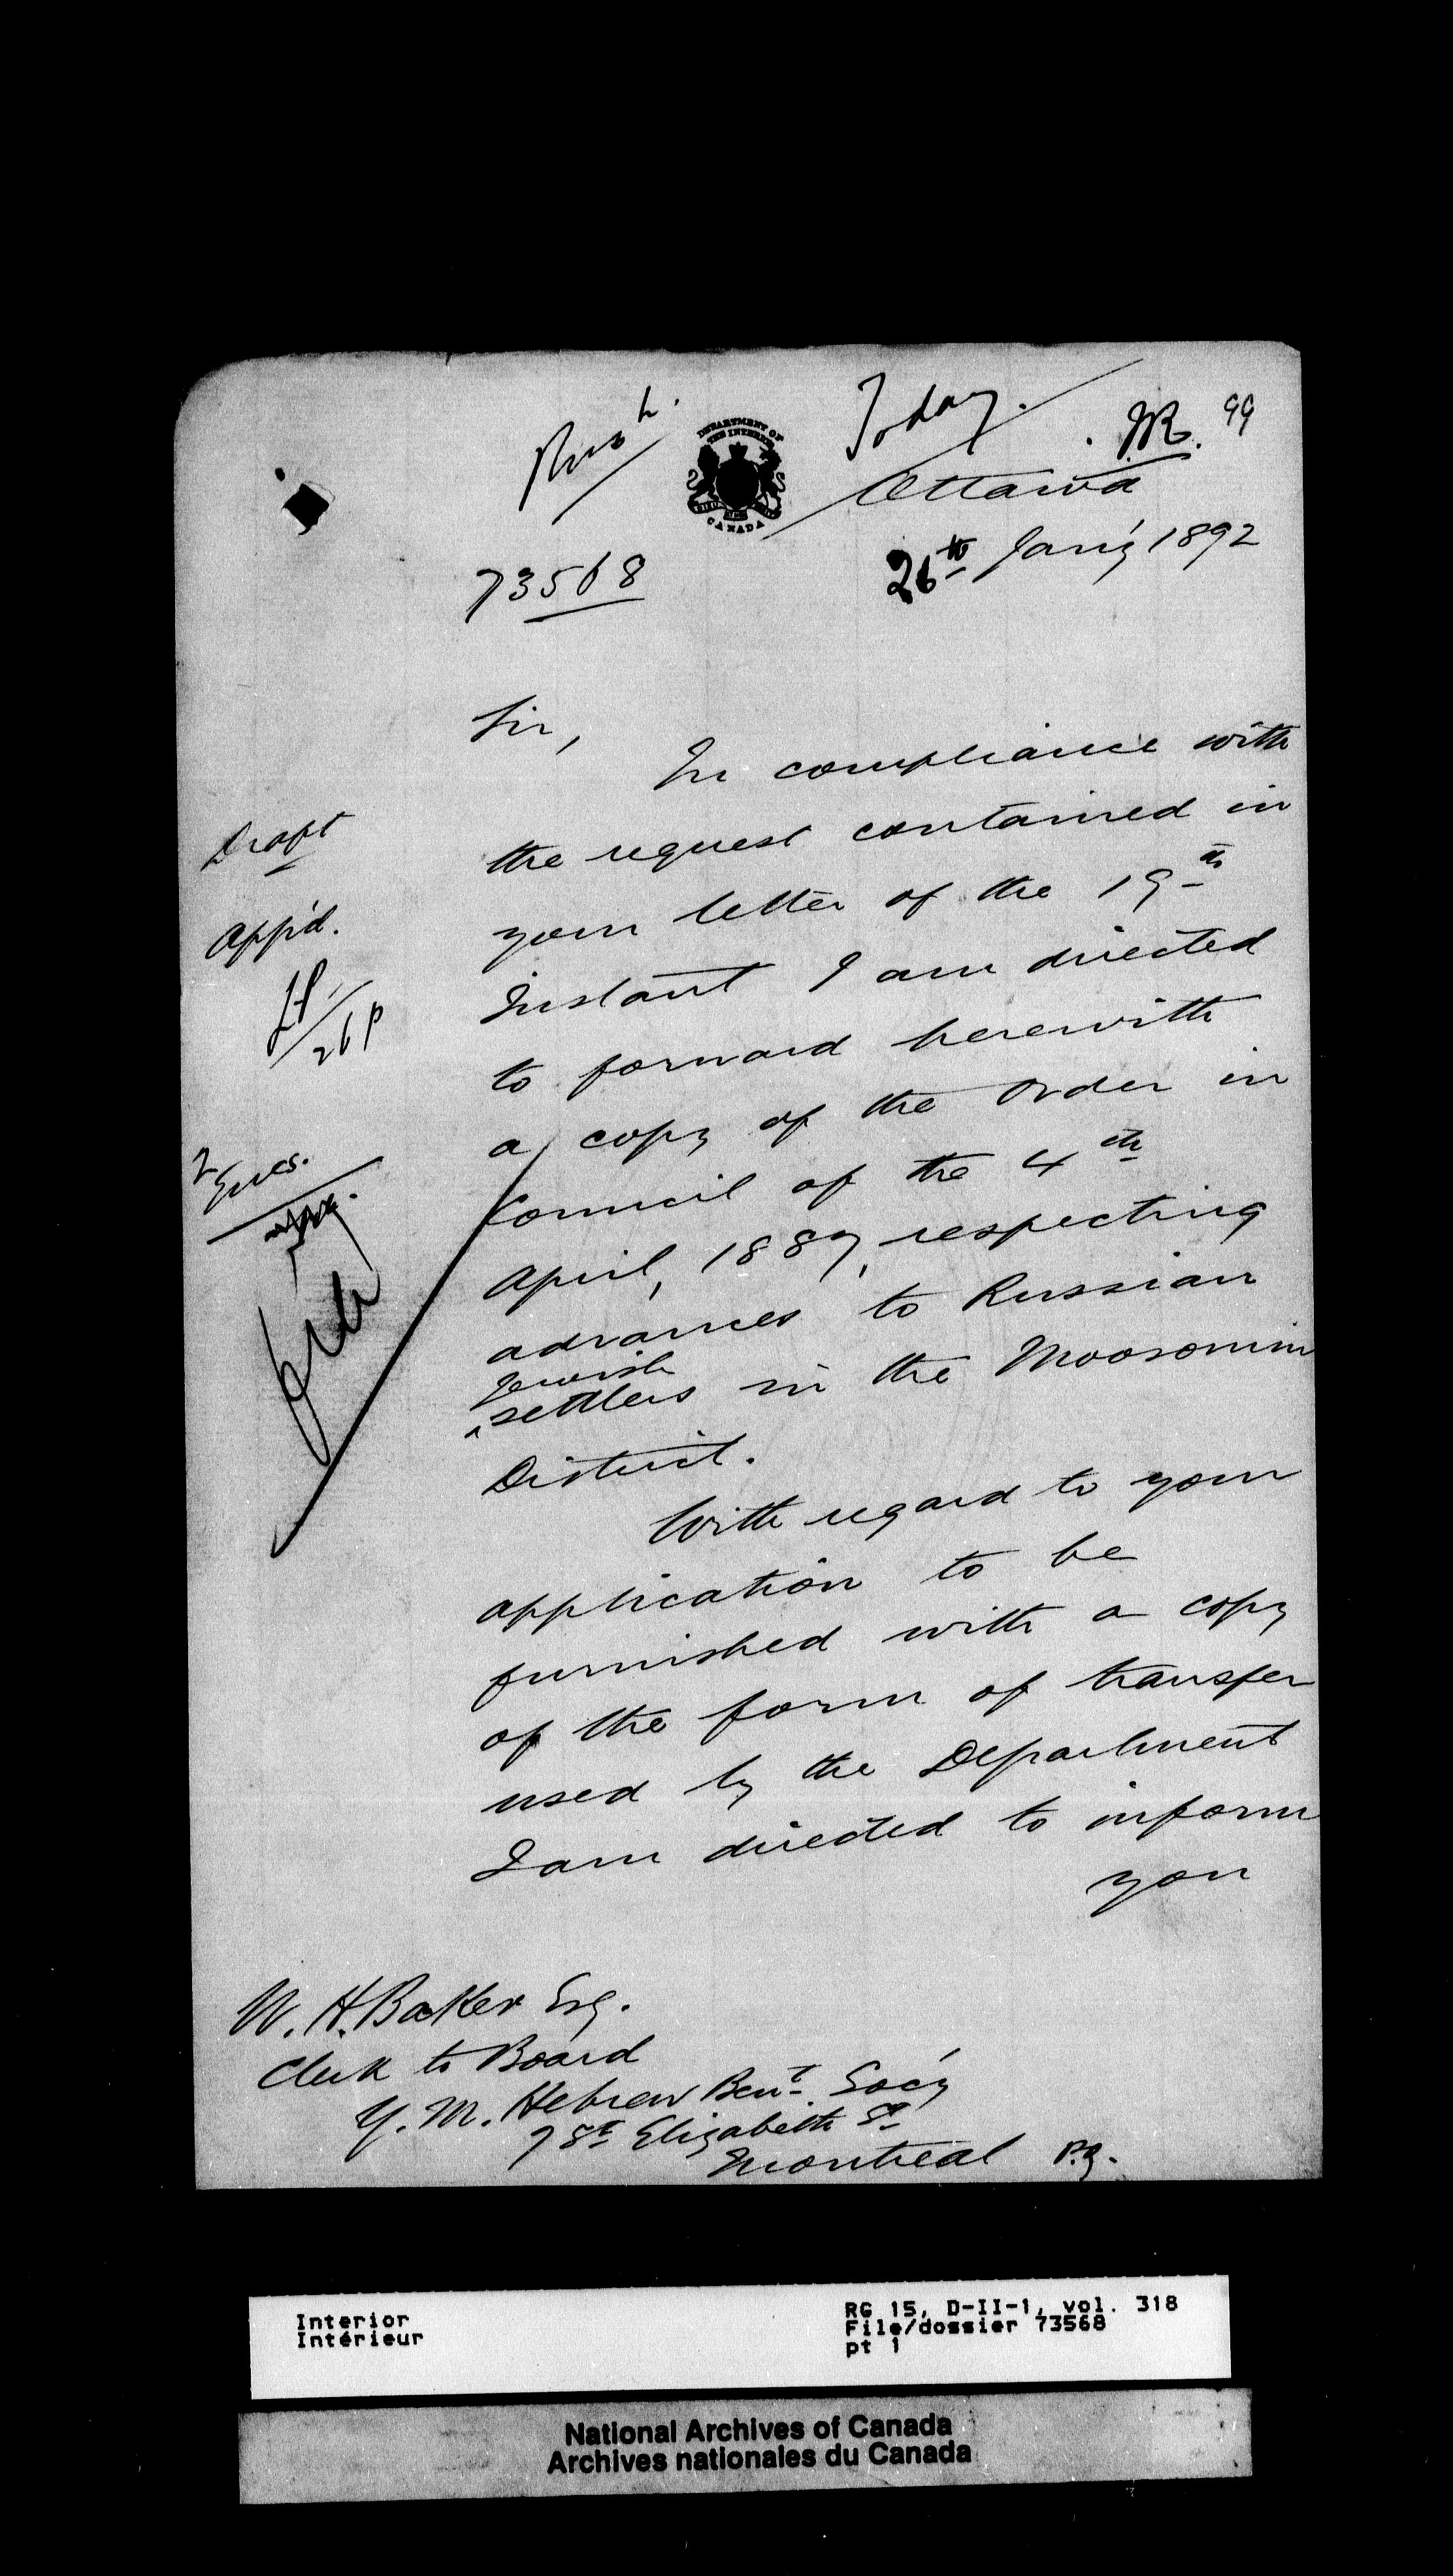 Rush.
Today.
J.R. 99
DEPARTMENT OF
THE INTERIOR
CANADA
Ottawa
26th Jan'y 1892
73568
Sir,
In compliance with
the request contained in
your letter of the 19th
Instant I am directed
to forward herewith
a copy of the Order in
Council of the 4th
April, 1887, respecting
advances to Russian
Jewish
^settlers in the Moosomin
District.
With regard to your
application to be
furnished with a copy
of the form of transfer
used by the Department
I am directed to inform
you
Draft
App'd.
26
2
W. H. Baker Esq.
Clerk to Board
Y. M. Hebrew Bent Soc'y
7 St Elizabeth St
Montreal P.Q.
Interior
Intérieur
RG 15, D-II-1, vol. 318
File/dossier 73568
pt 1
National Archives of Canada
Archives nationales du Canada